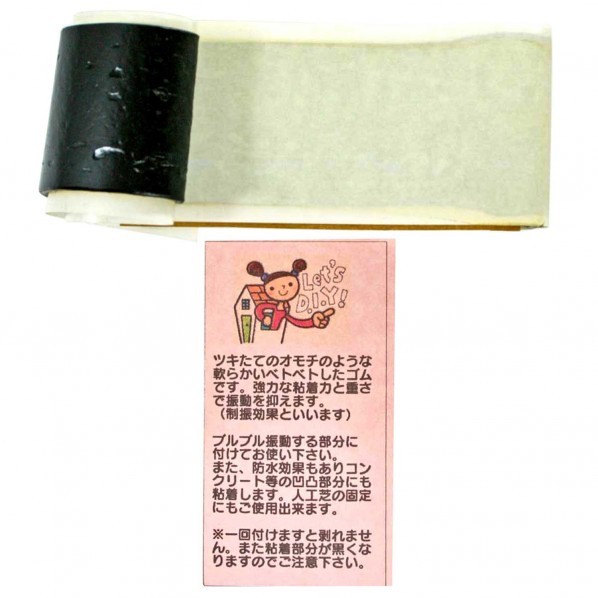 Let's
D.I.Y!
ツキたてのオモチのような
軟らかいベトベトしたゴム
です。強力な粘着力と重さ
で振動を抑えます。
（制振効果といいます）
ブルブル振動する部分に
付けてお使い下さい。
また、防水効果もありコン
クリート等の凹凸部分にも
粘着します。人工芝の固定
にもご使用出来ます。
※一回付けますと剥れませ
ん。また粘着部分が黒くな
りますのでご注意下さい。